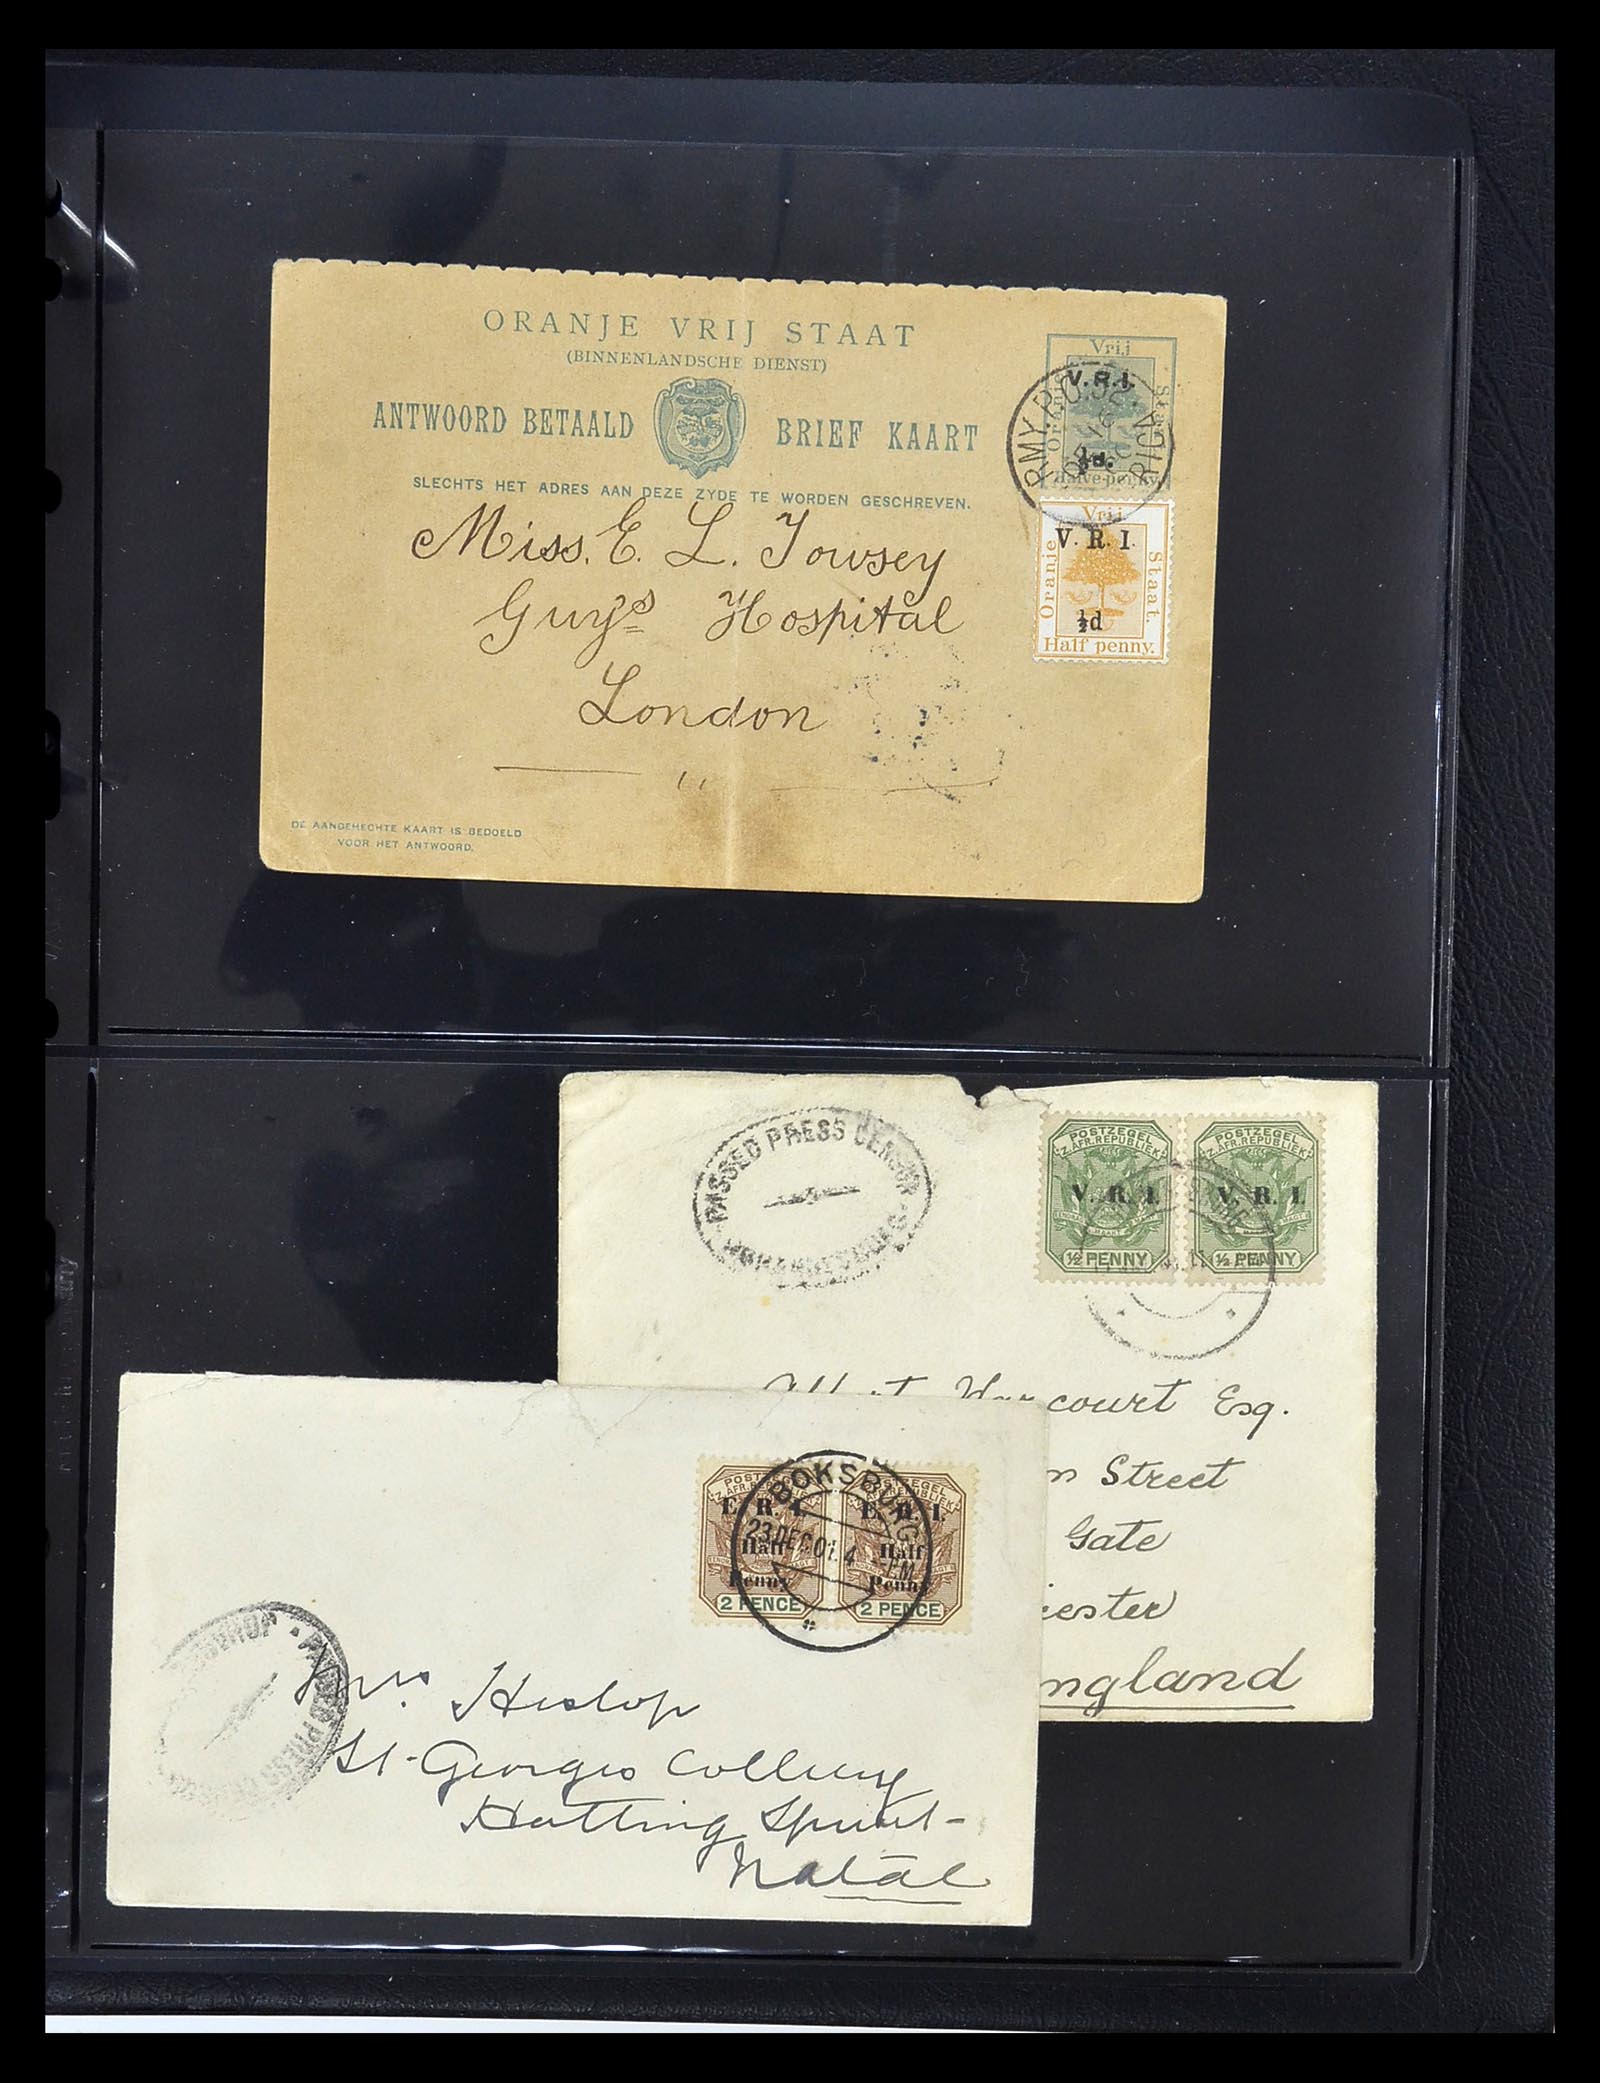 ORANJE VRIJ STAAT
(BINNENLANDSCHE DIENST)
ANTWOORD BETAALD BRIEF KAART
SLECHTS HET ADRES AAN DEZE ZYDE TE WORDEN GESCHREVEN.
Vrij
Oranje
Staat
V.R.I.
½d.
Halve-penny
RMY.P.O.52.
Vrij
Oranje
Staat.
V. R. I.
½d
Half penny.
Miss. E. L. Towsey
Guy's Hospital
London
DE AANGEHECHTE KAART IS BEDOELD
VOOR HET ANTWOORD.
PASSED PRESS CENSOR
JOHANNESBURG
POSTZEGEL
Z. AFR. REPUBLIEK
V. R. I.
½ PENNY
POSTZEGEL
Z. AFR. REPUBLIEK
V. R. I.
½ PENNY
Harcourt Esq.
Street
Gate
ngland
POSTZEGEL
Z. AFR. REPUBLIEK
E. R. I.
Half
Penny
2 PENCE
POSTZEGEL
E. R. I.
Half
Penny
2 PENCE
BOKSBURG
23 DEC 01. 4 PM
PASSED PRESS
Mrs. Heslop
St. Georges Colliery
Hatting Spruit-
Natal